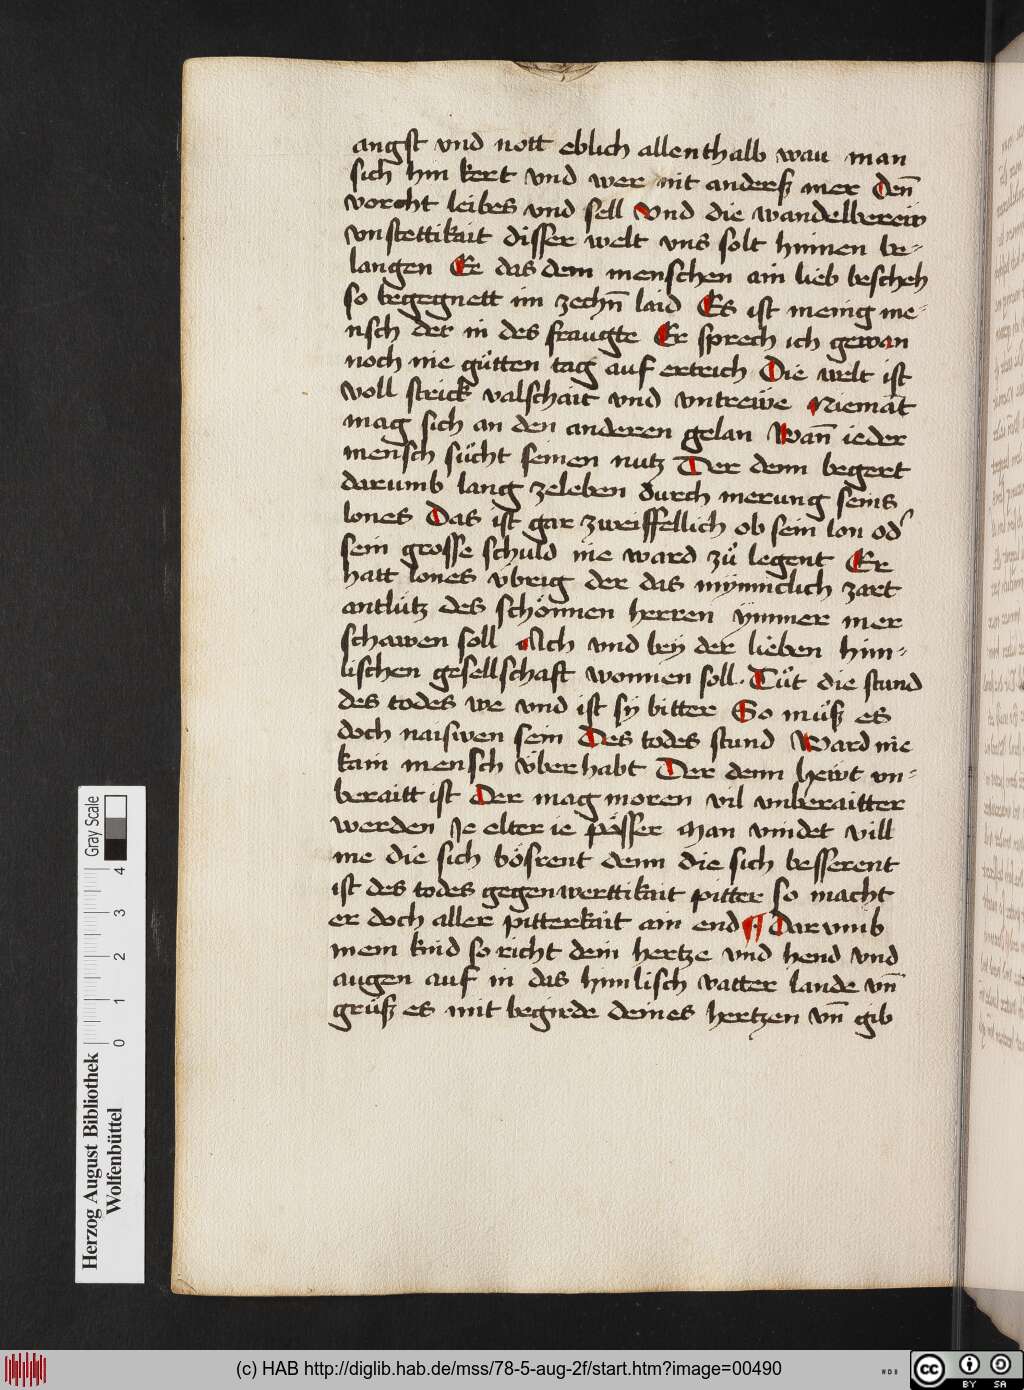 angst vnd nott eblich allenthalb wau man
sich hin kert vnd wer nit anderß mer Den̄
vorcht leibes vnd sell Vnd die wandelberein
vnstettikait disser welt vns solt hinnen be-
langen Ee das dem menschen ain lieb bescheh
so begegnett im zechn̄ laid Es ist menig me-
nsch der in des fraugte Er sprech ich gewan
noch nie gůtten tag auf ertrich Die welt ist
voll strick valschait vnd vntrewe Niemāt
mag sich an den anderen gelan Wan̄ ieder
mensch sůcht seinen nutz Der denn begert
darumb lang zeleben durch merung seins
lones Das ist gar zweiffellich ob sein lon od
sein grosse schuld nie ward zů legent Er
hatt lones v̈brig der das mynnclich zart
antlütz des schönnen herren ymmer mer
schawen soll Ach vnd bey der lieben him-
lischen gesellschaft wonnen soll. Tůt die stund
des todes we vnd ist sy bitter So můß es
doch naiswen sein Des todes stund Ward nie
kain mensch v̈berhabt Der denn hewt vn-
beraitt ist Der mag moren vil vnberaitter
werden Je elter ie pösser Man vindet vill
me die sich bösrent denn die sich besserent
ist des todes gegenwerttikait pitter so macht
er doch aller pitterkait ain end ¶ Darvmb
mein kind so richt dein hertze vnd hend vnd
augen auf in das himlisch vatter lande vn̄
grüß es mit begirde deines hertzen vn̄ gib
Herzog August Bibliothek
Wolfenbüttel
0 1 2 3 4
Gray Scale
(c) HAB http://diglib.hab.de/mss/78-5-aug-2f/start.htm?image=00490
WDB
cc BY SA